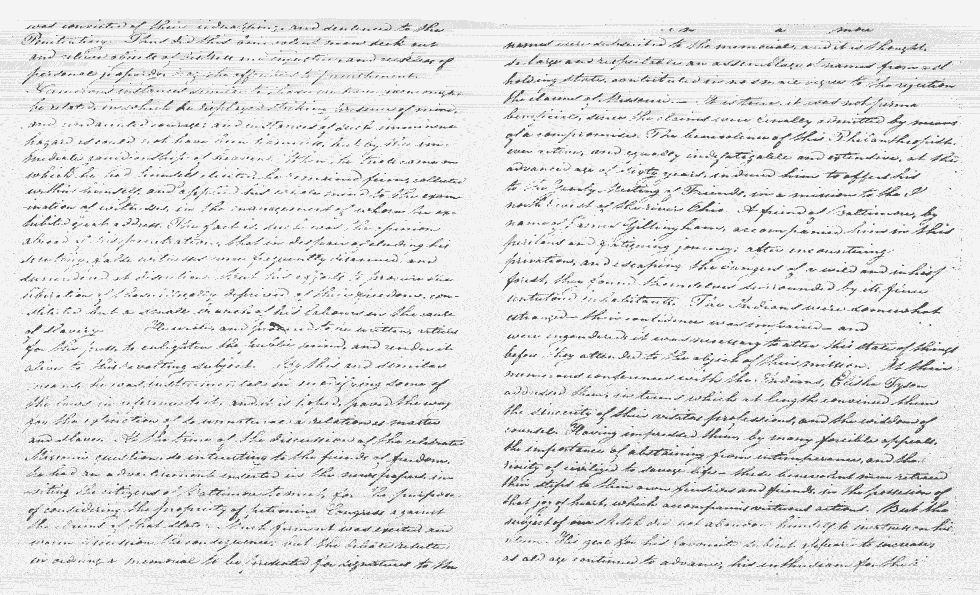 was convicted of their kidnapping, and sentenced to the
Penitentiary. Thus did this benevolent man seek out
and relieve objects of distress and injustice, and
personal
Numerous instances similar to those we have seen might
be related, in which he displayed striking presence of mind,
and undaunted courage; and instances of such imminent
hazard as could not have been but by the
mediate guardianship of heaven. When the trials came on
which he had he remained firm, collected
within himself, and applied his whole mind to the exam
ination of witnesses, in the management of whom he ex-
hibited great address. The fact is, such was the opinion
abroad of his penetration, that in despair of eluding his
scrutiny, false witnesses were frequently and
at discretion. But his efforts to procure the
liberation of those illegally deprived of their freedom, con-
stituted but a small share of his labours in the cause
of slavery. He wrote, and to be written, articles
for the press, to enlighten the public mind, and render it
alive to this revolting subject. By this and similar
means he was instrumental in modifying some of
the laws in reference to it, and it is hoped, paved the way
for the extinction of so unnatural a relation as master
and slave. At the time of the discussion of the celebrated
Missouri question, so interesting to the friends of freedom,
he had an advertisement inserted in the newspapers in-
viting the citizens of Baltimore to meet, for the purpose
of considering the propriety of petitioning Congress against
the claims of that state. Much ferment was excited and
warm discussion the consequence; but the debate resulted
in ordering a memorial to be presented for signatures to the
names were subscribed to the memorial, and it is thought,
so large and respectable an assemblage of names from a slave
holding state, contributed in no small degree to the rejection
the claims of Missouri. It is true, it was not perma
beneficial, since the claims were finally admitted by means
of a compromise. The benevolence of this Philanthropist,
ever active, and equally indefatigable and extensive, at the
advanced age of sixty years, induced him to offer his
to the Yearly Meeting of Friends, in a mission to the I
north west of the river Ohio. A friend of Baltimore, by
name of James Gillingham, accompanied him in this
perilous and fatiguing journey; after encountering
privations, and escaping the dangers of a wild and inhosp
forest, they found themselves surrounded by its fierce
untutored inhabitants. The Indians were somewhat
estranged their confidence was impaired and
were engendered it was necessary to alter this state of things
before they attended to the object of their mission. At their
numerous conferences with the Indians, Elisha Tyson
addressed them, in terms which at length convinced them
the sincerity of their visitors professions, and the wisdom of
counsels. Having impressed them, by many forcible appeals,
the importance of abstaining from intemperance, and the
riority of civilized to savage life these benevolent men retraced
their steps to their own firesides and friends in the possession of
that joy of heart, which accompanies virtuous actions. But the
subject of our sketch did not abandon himself to on his
return. His zeal for his favourite subject appears to increase,
as old age continued to advance, his enthusiasm for the